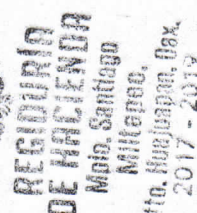 REGIDURIA
DE HACIENDA
Mpio. Santiago
Miltepec,
Dtto. Huajuapan, Oax.
2017 - 2019